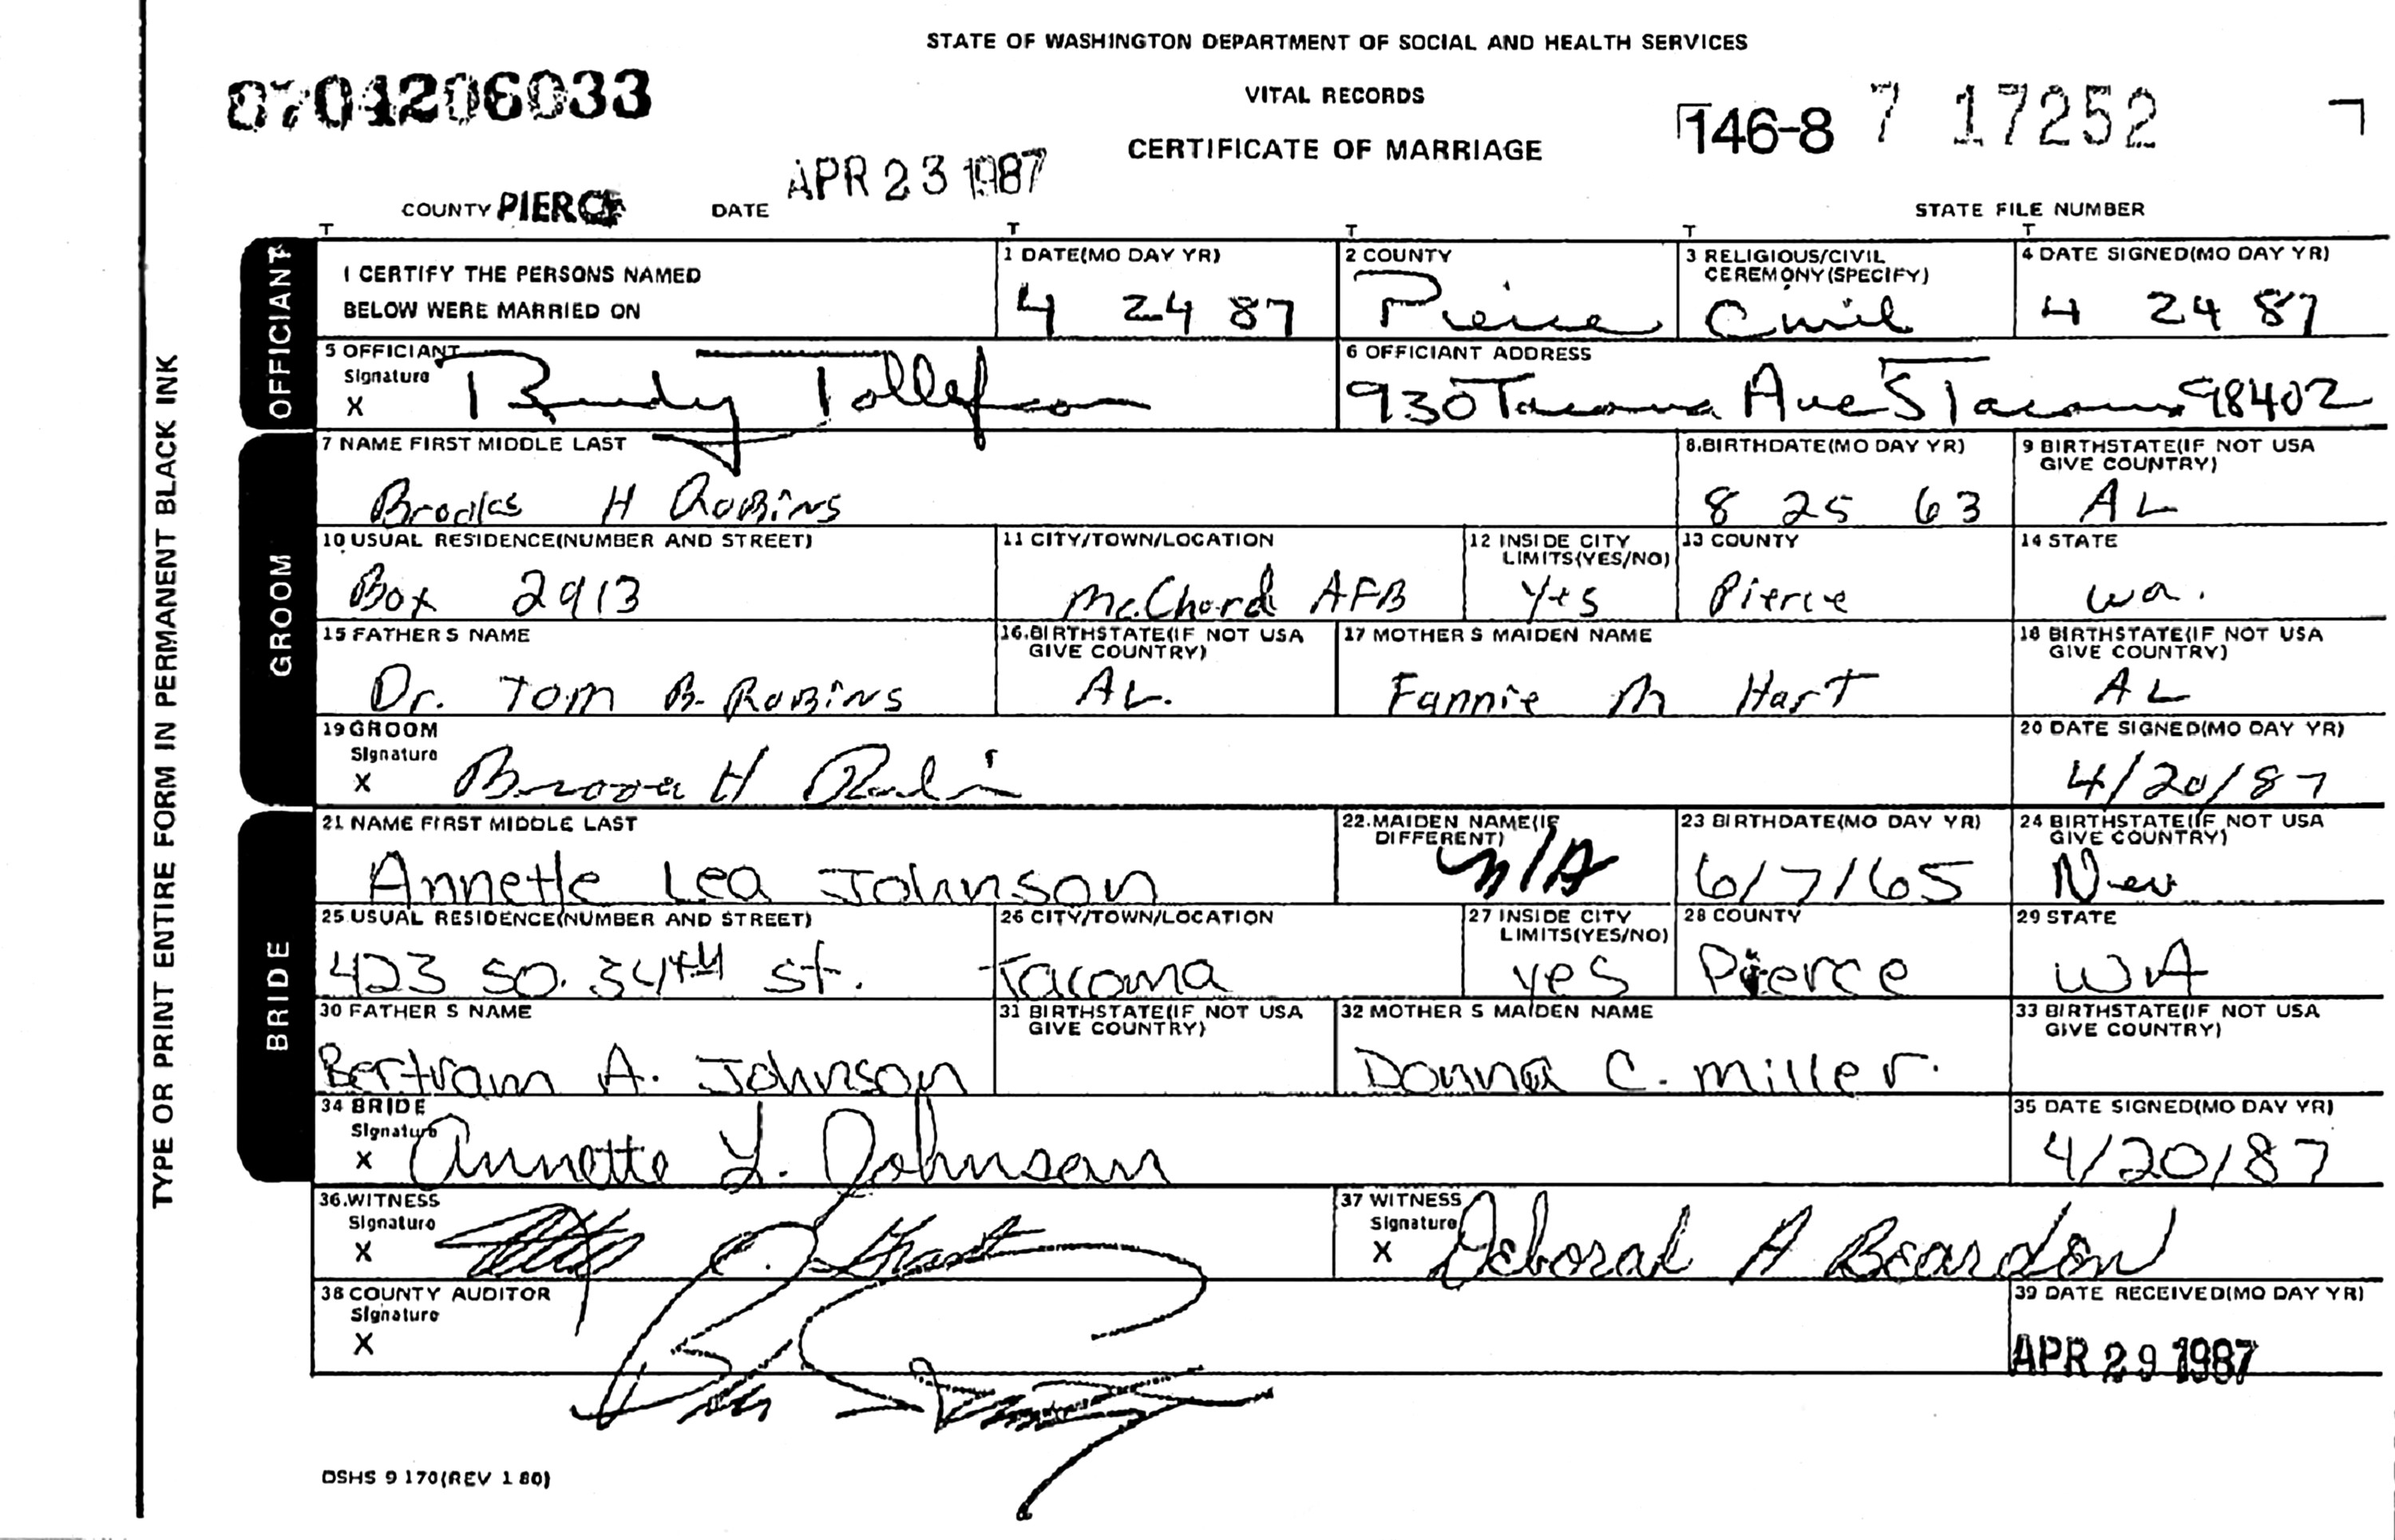 STATE OF WASHINGTON DEPARTMENT OF SOCIAL AND HEALTH SERVICES
8704206033
VITAL RECORDS
146-8 7 17252
CERTIFICATE OF MARRIAGE
COUNTY PIERCE DATE APR 23 1987
STATE FILE NUMBER
TYPE OR PRINT ENTIRE FORM IN PERMANENT BLACK INK
OFFICIANT
I CERTIFY THE PERSONS NAMED
BELOW WERE MARRIED ON
1 DATE(MO DAY YR)
4 24 87
2 COUNTY
Pierce
3 RELIGIOUS/CIVIL
CEREMONY(SPECIFY)
Civil
4 DATE SIGNED(MO DAY YR)
4 24 87
5 OFFICIANT
Signature
X Tollefson
6 OFFICIANT ADDRESS
930 Tacoma Ave S Tacoma 98402
GROOM
7 NAME FIRST MIDDLE LAST
Brooks H Robins
8.BIRTHDATE(MO DAY YR)
8 25 63
9 BIRTHSTATE(IF NOT USA
GIVE COUNTRY)
AL
10 USUAL RESIDENCE(NUMBER AND STREET)
Box 2913
11 CITY/TOWN/LOCATION
McChord AFB
12 INSIDE CITY
LIMITS(YES/NO)
Yes
13 COUNTY
Pierce
14 STATE
Wa.
15 FATHER S NAME
Dr. Tom B. Robins
16.BIRTHSTATE(IF NOT USA
GIVE COUNTRY)
AL.
17 MOTHER S MAIDEN NAME
Fannie M Hart
18 BIRTHSTATE(IF NOT USA
GIVE COUNTRY)
AL
19 GROOM
Signature
X H
20 DATE SIGNED(MO DAY YR)
4/20/87
BRIDE
21 NAME FIRST MIDDLE LAST
Annette Lea Johnson
22.MAIDEN NAME(IF
DIFFERENT)
N/A
23 BIRTHDATE(MO DAY YR)
6/7/65
24 BIRTHSTATE(IF NOT USA
GIVE COUNTRY)
Nev
25.USUAL RESIDENCE(NUMBER AND STREET)
423 SO. 34TH St.
26 CITY/TOWN/LOCATION
Tacoma
27 INSIDE CITY
LIMITS(YES/NO)
yes
28 COUNTY
Pierce
29 STATE
WA
30 FATHER S NAME
Bertram A. Johnson
31 BIRTHSTATE(IF NOT USA
GIVE COUNTRY)
32 MOTHER S MAIDEN NAME
Donna C. Miller.
33 BIRTHSTATE(IF NOT USA
GIVE COUNTRY)
34 BRIDE
Signature
X Annette L. Johnson
35 DATE SIGNED(MO DAY YR)
4/20/87
36.WITNESS
Signature
X
37 WITNESS
Signature
X Deborah A Beardon
38 COUNTY AUDITOR
Signature
X
39 DATE RECEIVED(MO DAY YR)
APR 29 1987
DSHS 9 170(REV 1 80)